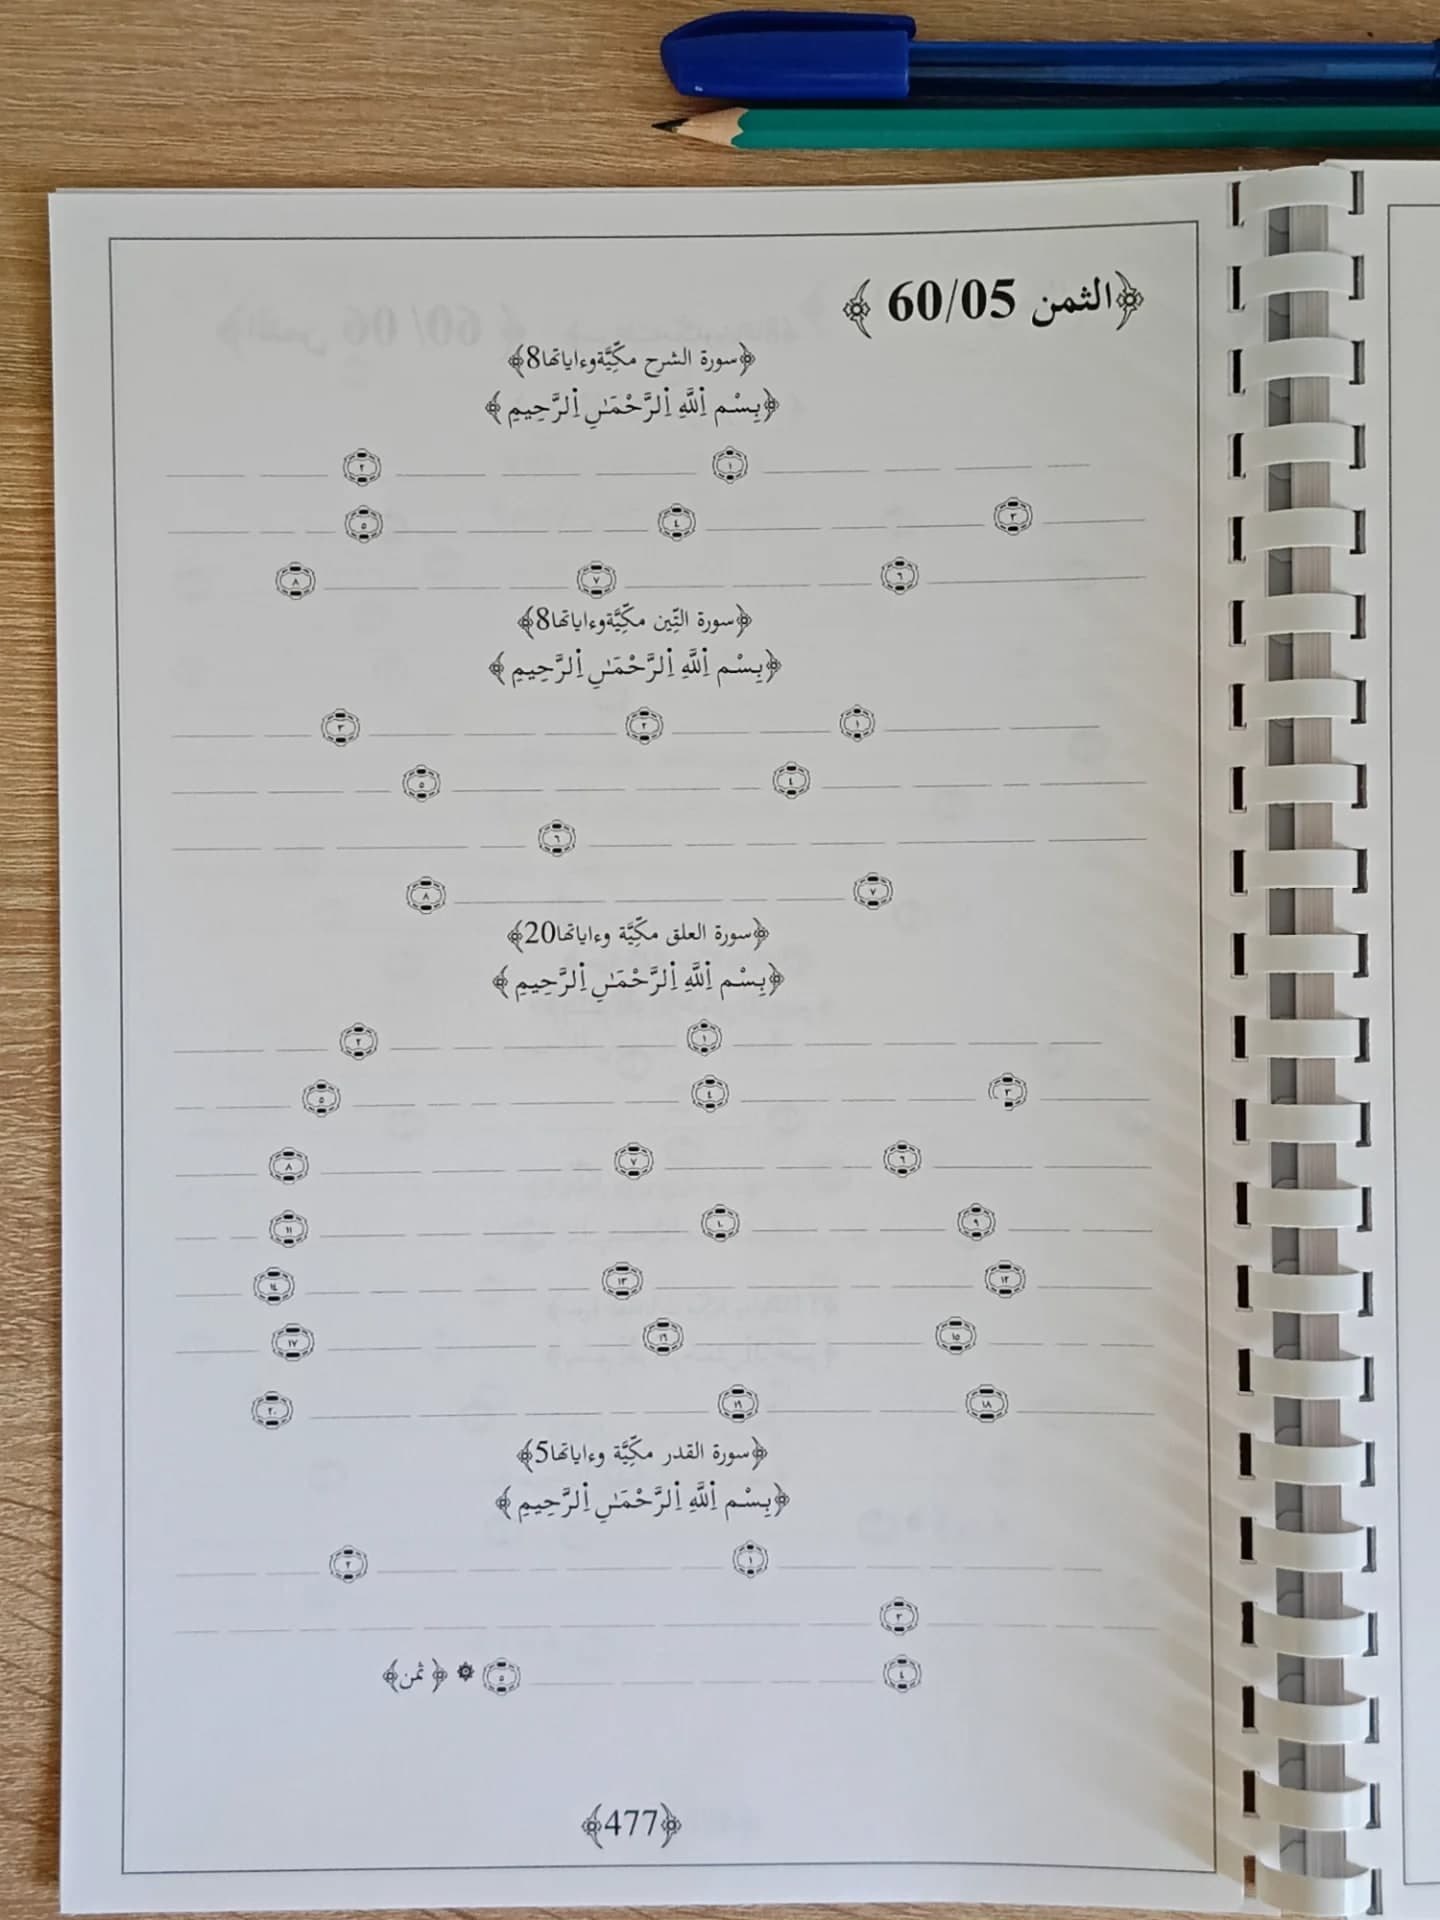 ﴿الثمن 60/05 ﴾
﴿سورة الشرح مكّيَّةوءاياتها8﴾
﴿بِسْمِ اِ۬للَّهِ اِ۬لرَّحْمَـٰنِ اِ۬لرَّحِيمِ ﴾
١ ٢
٣ ٤ ٥
٦ ٧ ٨
﴿سورة التِّين مكِّيَّةوءاياتها8﴾
﴿بِسْمِ اِ۬للَّهِ اِ۬لرَّحْمَـٰنِ اِ۬لرَّحِيمِ ﴾
١ ٢ ٣
٤ ٥
٦
٧ ٨
﴿سورة العلق مكِّيَّة وءاياتها20﴾
﴿بِسْمِ اِ۬للَّهِ اِ۬لرَّحْمَـٰنِ اِ۬لرَّحِيمِ ﴾
١ ٢
٣ ٤ ٥
٦ ٧ ٨
٩ ١٠ ١١
١٢ ١٣ ١٤
١٥ ١٦ ١٧
١٨ ١٩ ٢٠
﴿سورة القدر مكِّيَّة وءاياتها5﴾
﴿بِسْمِ اِ۬للَّهِ اِ۬لرَّحْمَـٰنِ اِ۬لرَّحِيمِ ﴾
١ ٢
٣
٤ ٥ ۞ ﴿ ثمن﴾
﴿477﴾